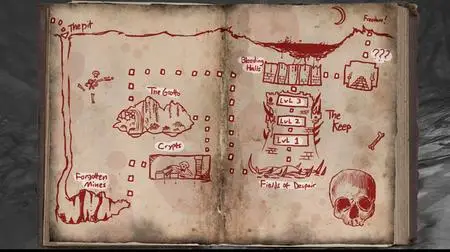 The pit
Freedom!
???
Bleeding
Halls
The Grotto
LVL 3
LVL 2
LVL 1
The
Keep
Crypts
Forgotten
Mines
Fields of Despair